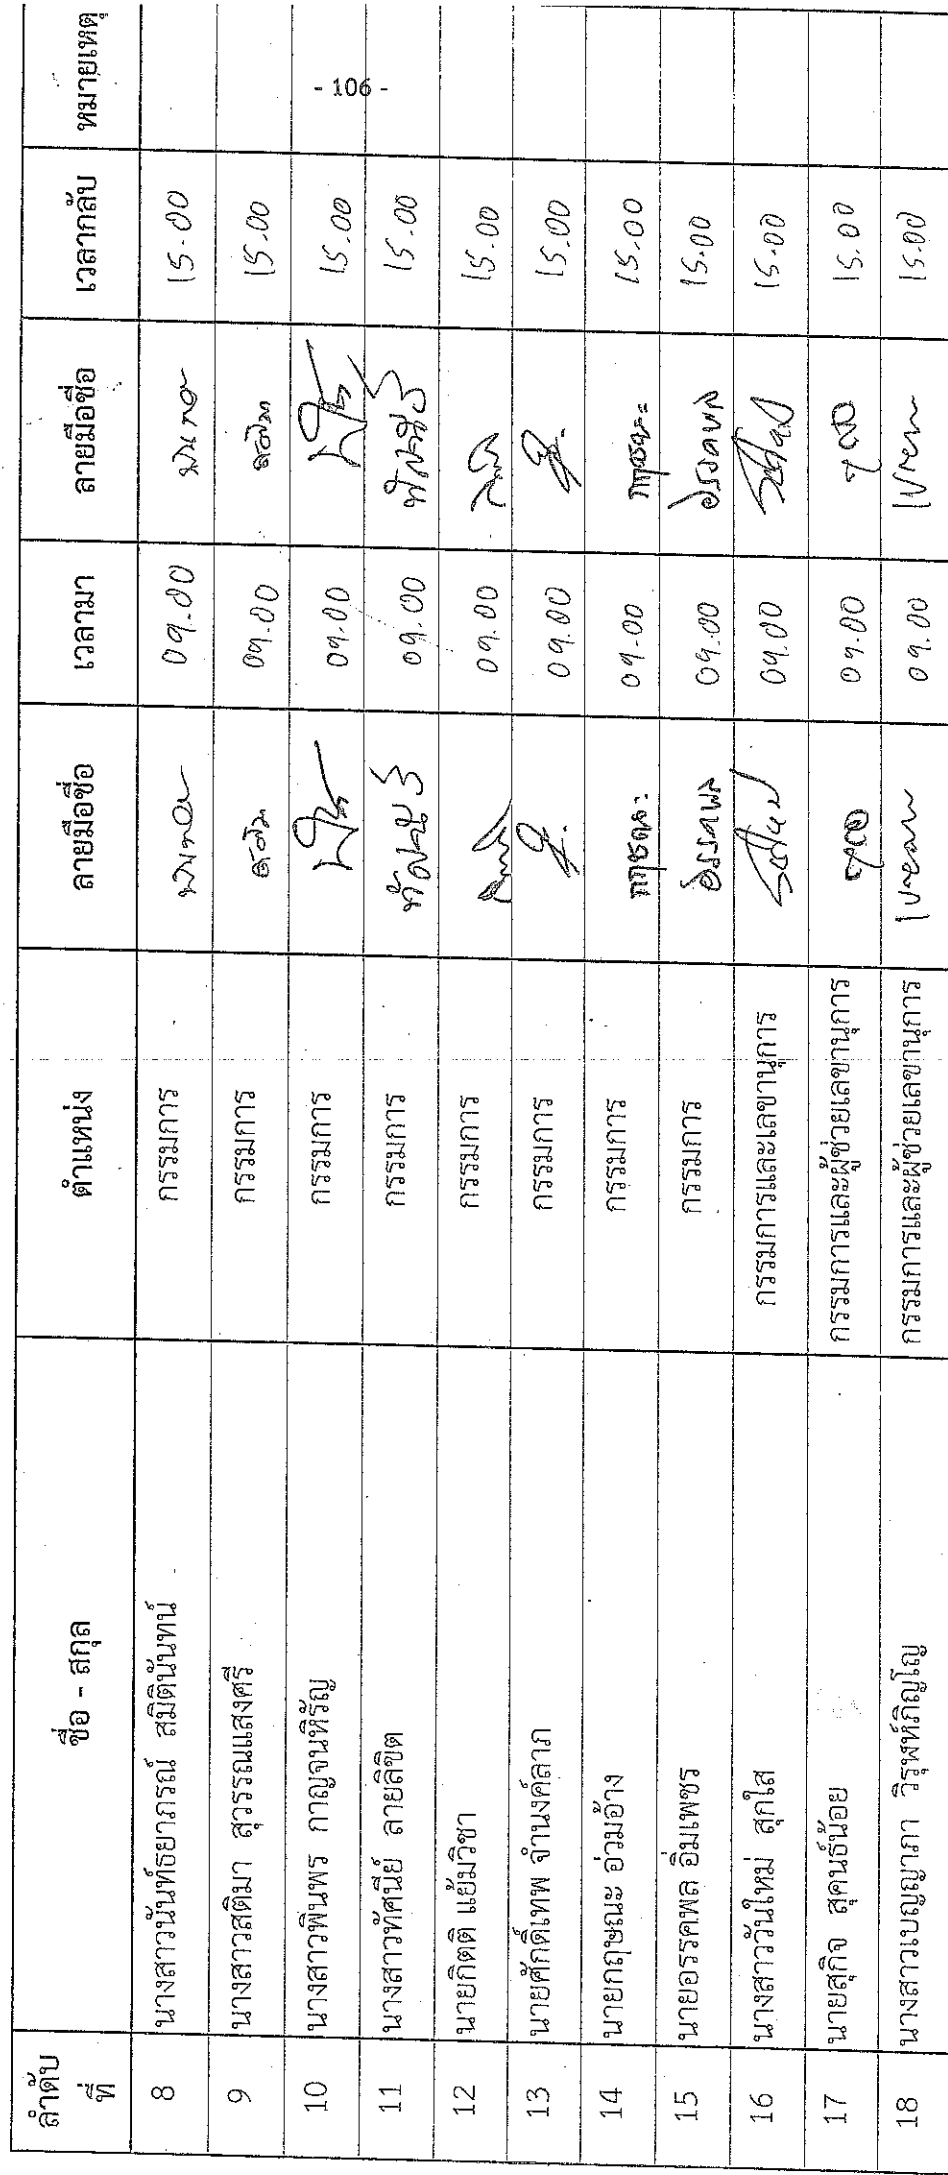 - 106 -
ลำดับที่ ชื่อ - สกุล ตำแหน่ง ลายมือชื่อ เวลามา ลายมือชื่อ เวลากลับ หมายเหตุ
8 นางสาวนันท์ธยาภรณ์ สมิตินันทน์ กรรมการ 09.00 15.00
9 นางสาวสติมา สุวรรณแสงศรี กรรมการ 09.00 15.00
10 นางสาวพินพร กาญจนหิรัญ กรรมการ 09.00 15.00
11 นางสาวทัศนีย์ ลายลิขิต กรรมการ ทัศนีย์ 09.00 ทัศนีย์ 15.00
12 นายกิตติ แย้มวิชา กรรมการ 09.00 15.00
13 นายศักดิ์เทพ จำนงค์ลาภ กรรมการ 09.00 15.00
14 นายกฤษณะ อ่วมอ้าง กรรมการ กฤษณะ 09.00 กฤษณะ 15.00
15 นายอรรคพล อิ่มเพชร กรรมการ อรรคพล 09.00 อรรคพล 15.00
16 นางสาววันใหม่ สุกใส กรรมการและเลขานุการ 09.00 15.00
17 นายสุกิจ สุคนธ์น้อย กรรมการและผู้ช่วยเลขานุการ 09.00 15.00
18 นางสาวเบญญาภา วิรุฬห์ภิญโญ กรรมการและผู้ช่วยเลขานุการ 09.00 15.00